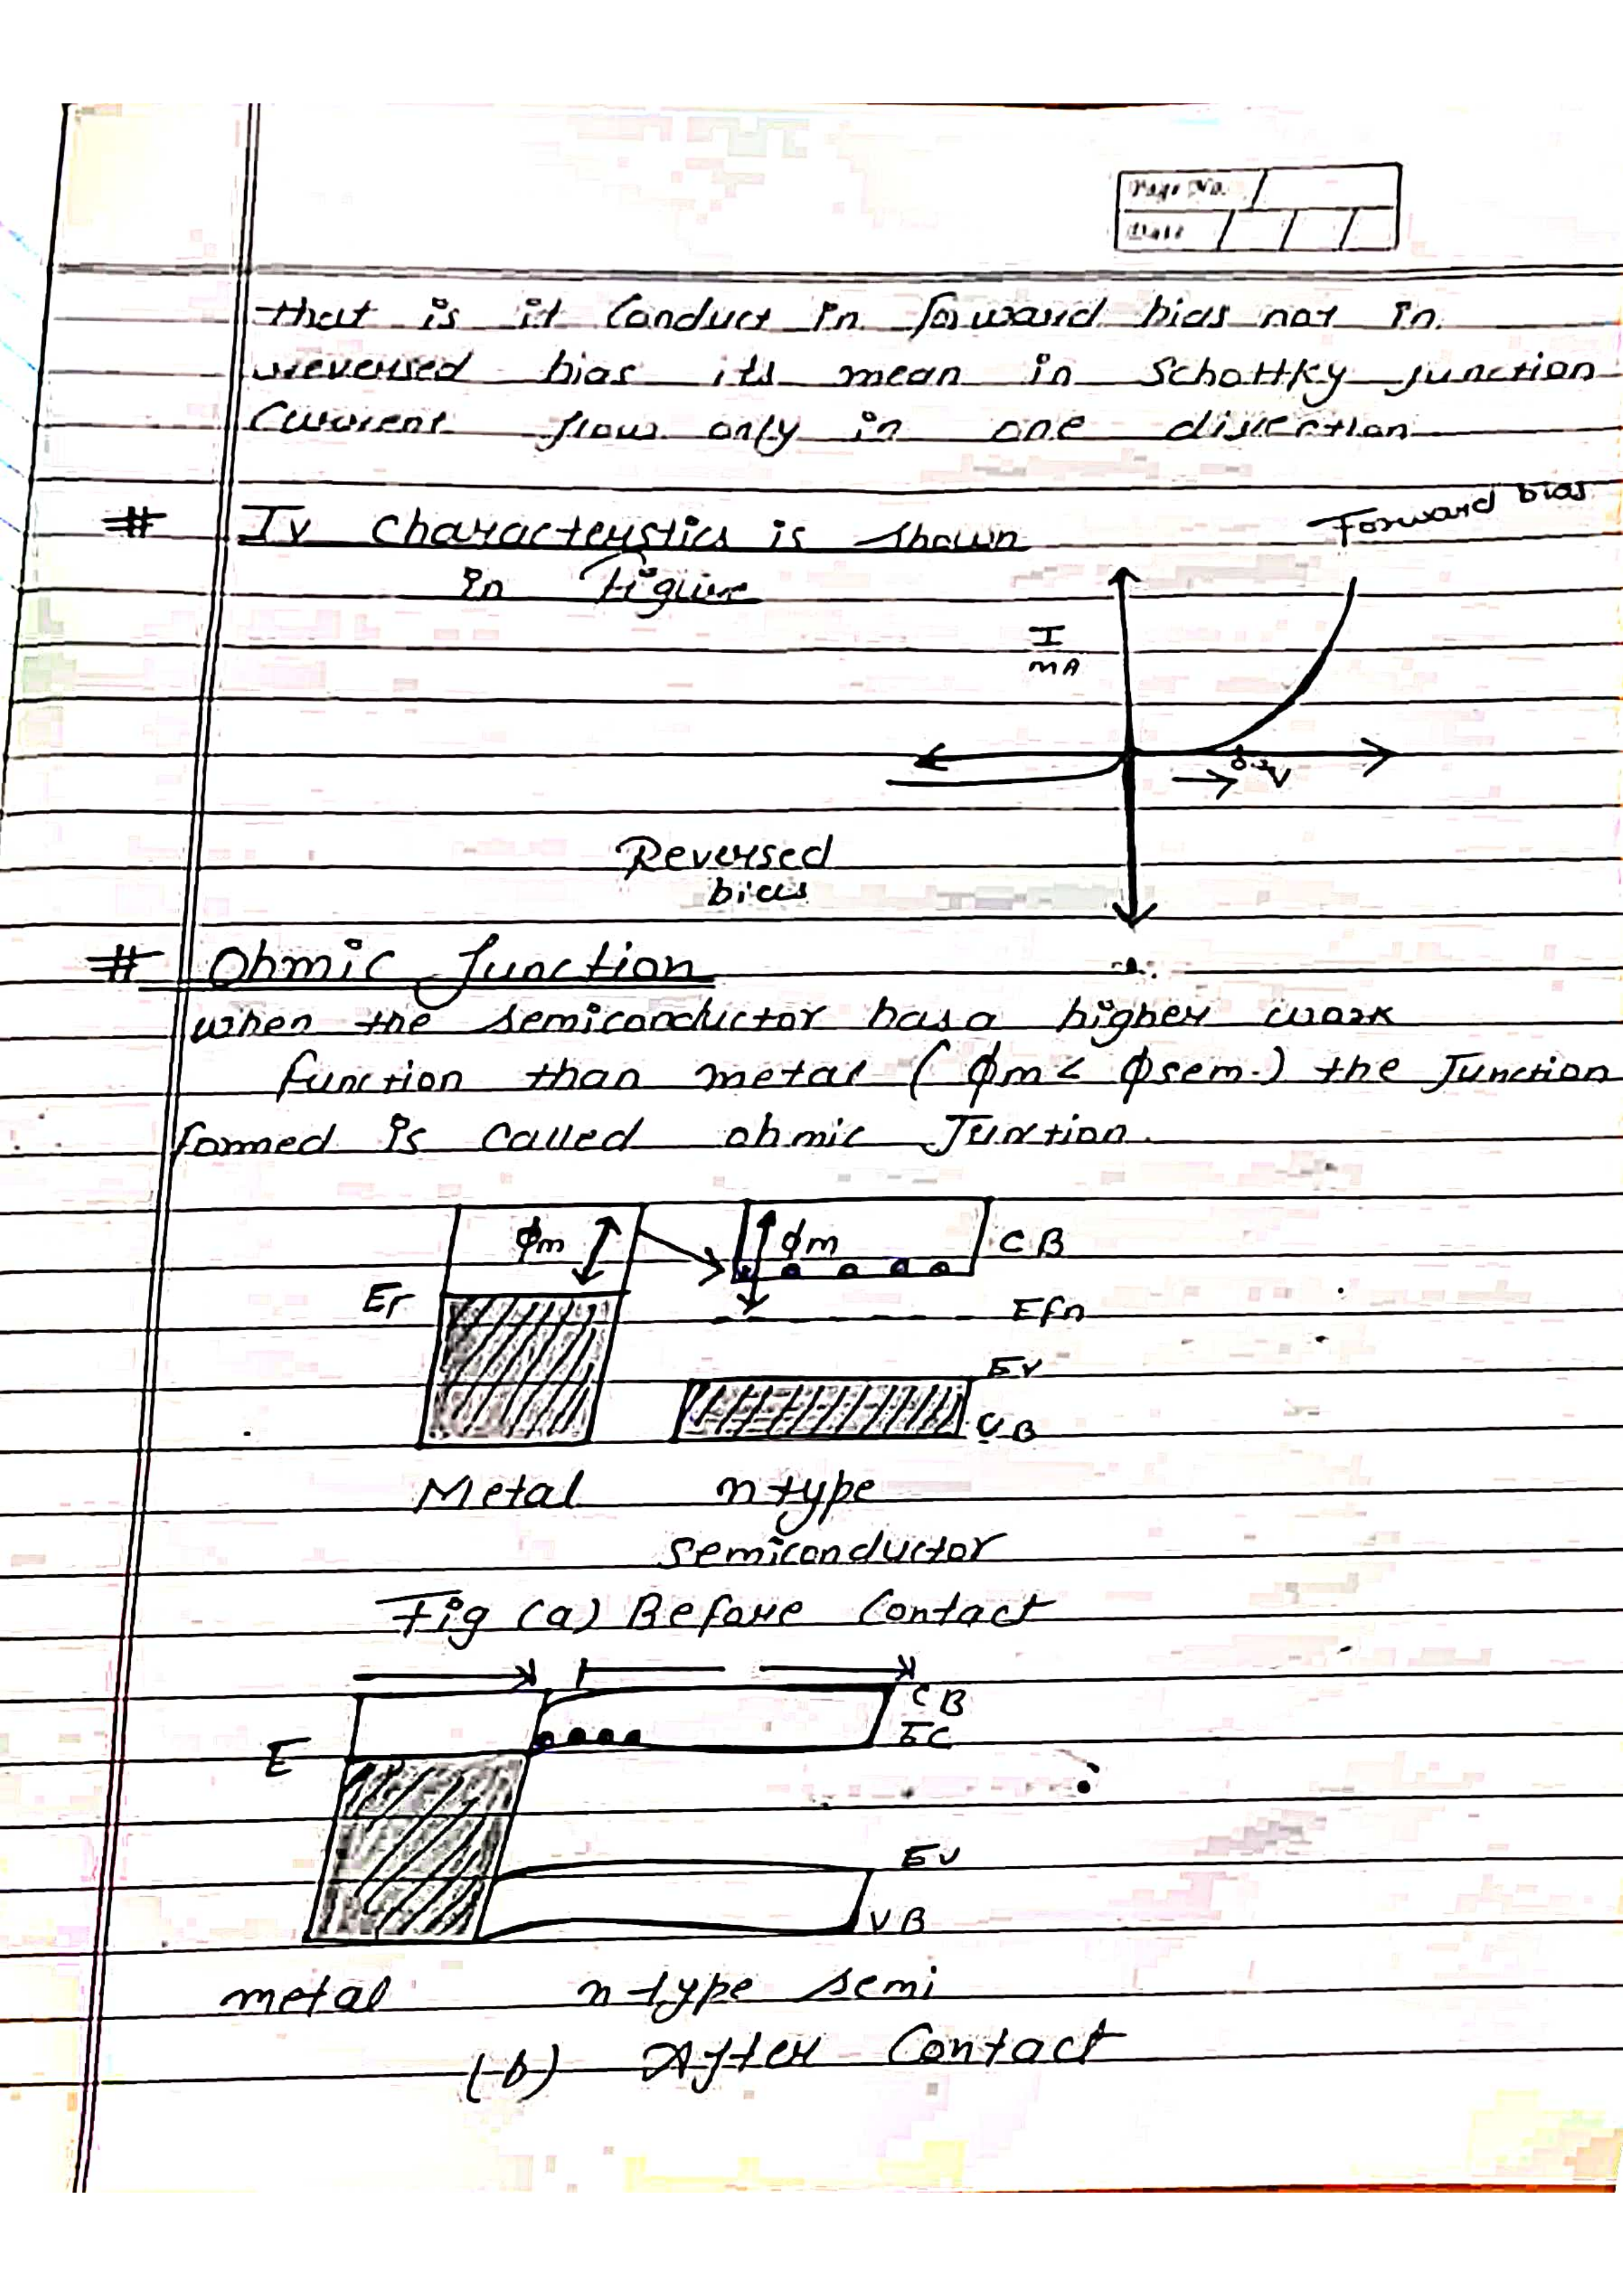 Page No.
Date
that is it conduct in forward bias not in
reversed bias its mean in Schottky junction
Current flows only in one direction
# IV characteristics is shown
in Figure
Forward bias
I
mA
0.2V
Reversed
bias
# Ohmic Junction
when the semiconductor has a higher work
function than metal ( ϕm < ϕsem. ) the Junction
formed is called ohmic Junction.
ϕm ϕm CB
EF
Efn
EV
VB
Metal n type
semiconductor
Fig (a) Before Contact
CB
E EC
EV
VB
metal n-type semi
(b) After Contact